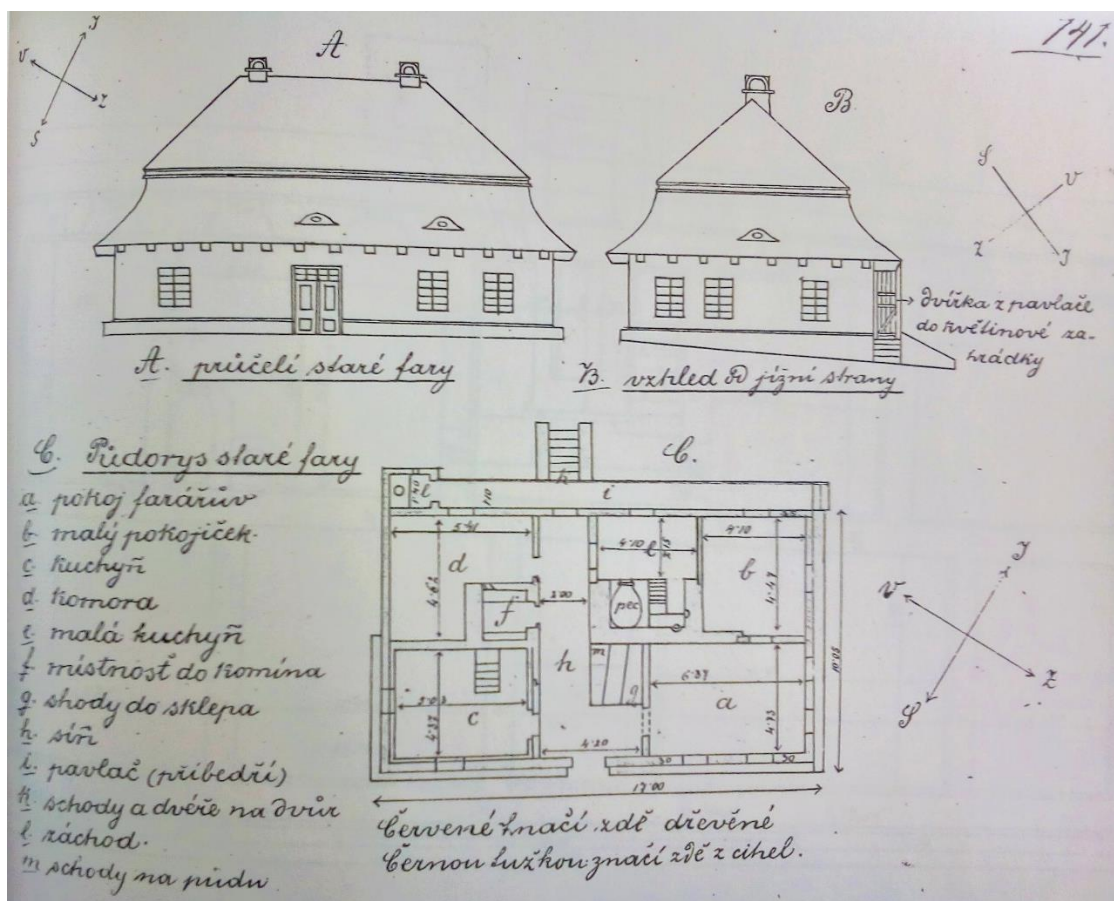 141.
J
V
Z
S
A
B
S
V
Z
J
dvířka z pavlače
do květinové za-
hrádky
A. průčelí staré fary
B. vzhled od jižní strany
C. Půdorys staré fary
a. pokoj farářův
b. malý pokojíček.
c. kuchyň
d. komora
e. malá kuchyň
f. místnosť do komína
g. shody do sklepa
h. síň
i. pavlač (příbedří)
k. schody a dvéře na dvůr
l. záchod.
m schody na půdu
C.
k
l
i
1·10
5·41
d
4·62
f
2·00
4·10
e
2·15
4·10
b
4·47
pec
m
g
h
6·37
a
4·73
c
4·37
4·20
50
50
17·00
J
V
Z
S
Červené značí zdě dřevěné
Černou tužkou značí zdě z cihel.